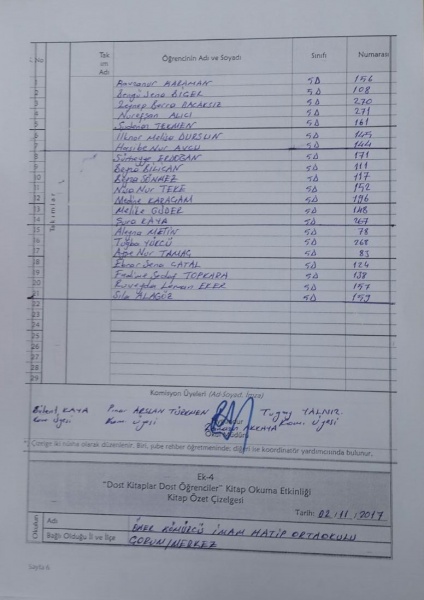 S. No Takım Adı Öğrencinin Adı ve Soyadı Sınıfı Numarası
Takımlar
1 KARAMAN 5D 156
2 Sena BİGER 5D 108
3 Zeynep Berra 5D 270
4 Nurefşan ALICI 5D 271
5 TEKMEN 5D 161
6 İlknur Melisa DURSUN 5D 145
7 Hasibe Nur AVCU 5D 144
8 Sümeyye ERDOĞAN 5D 171
9 Beyza BİLİCAN 5D 111
10 Büşra SÖNMEZ 5D 117
11 Nisa Nur TEKE 5D 152
12 KARAÇAM 5D 196
13 Melike GÜDER 5D 148
14 KAYA 5D 267
15 Aleyna METİN 5D 78
16 Tuğba 5D 268
17 Ayşe Nur TAMAÇ 5D 83
18 Ebrar Sena ÇATAL 5D 124
19 Fadime Sedef TOPKARA 5D 138
20 EKER 5D 157
21 Sıla ALAGÖZ 5D 159
22
23
24
25
26
27
28
29
Komisyon Üyeleri (Ad Soyad, İmza)
Bülent KAYA ARSLAN TÜRKMEN Tugay YALNIZ
Kom Üyesi Kom Üyesi AKKAYA Komi. Üyesi
Okul Müdürü
* Çizelge iki nüsha olarak düzenlenir. Biri, şube rehber öğretmeninde; diğeri ise koordinatör yardımcısında bulunur.
Ek-4
"Dost Kitaplar Dost Öğrenciler" Kitap Okuma Etkinliği
Kitap Özet Çizelgesi
Tarih: 02/11/2017
Okulun Adı İMAM HATİP ORTAOKULU
Bağlı Olduğu İl ve İlçe ÇORUM/MERKEZ
Sayfa 6